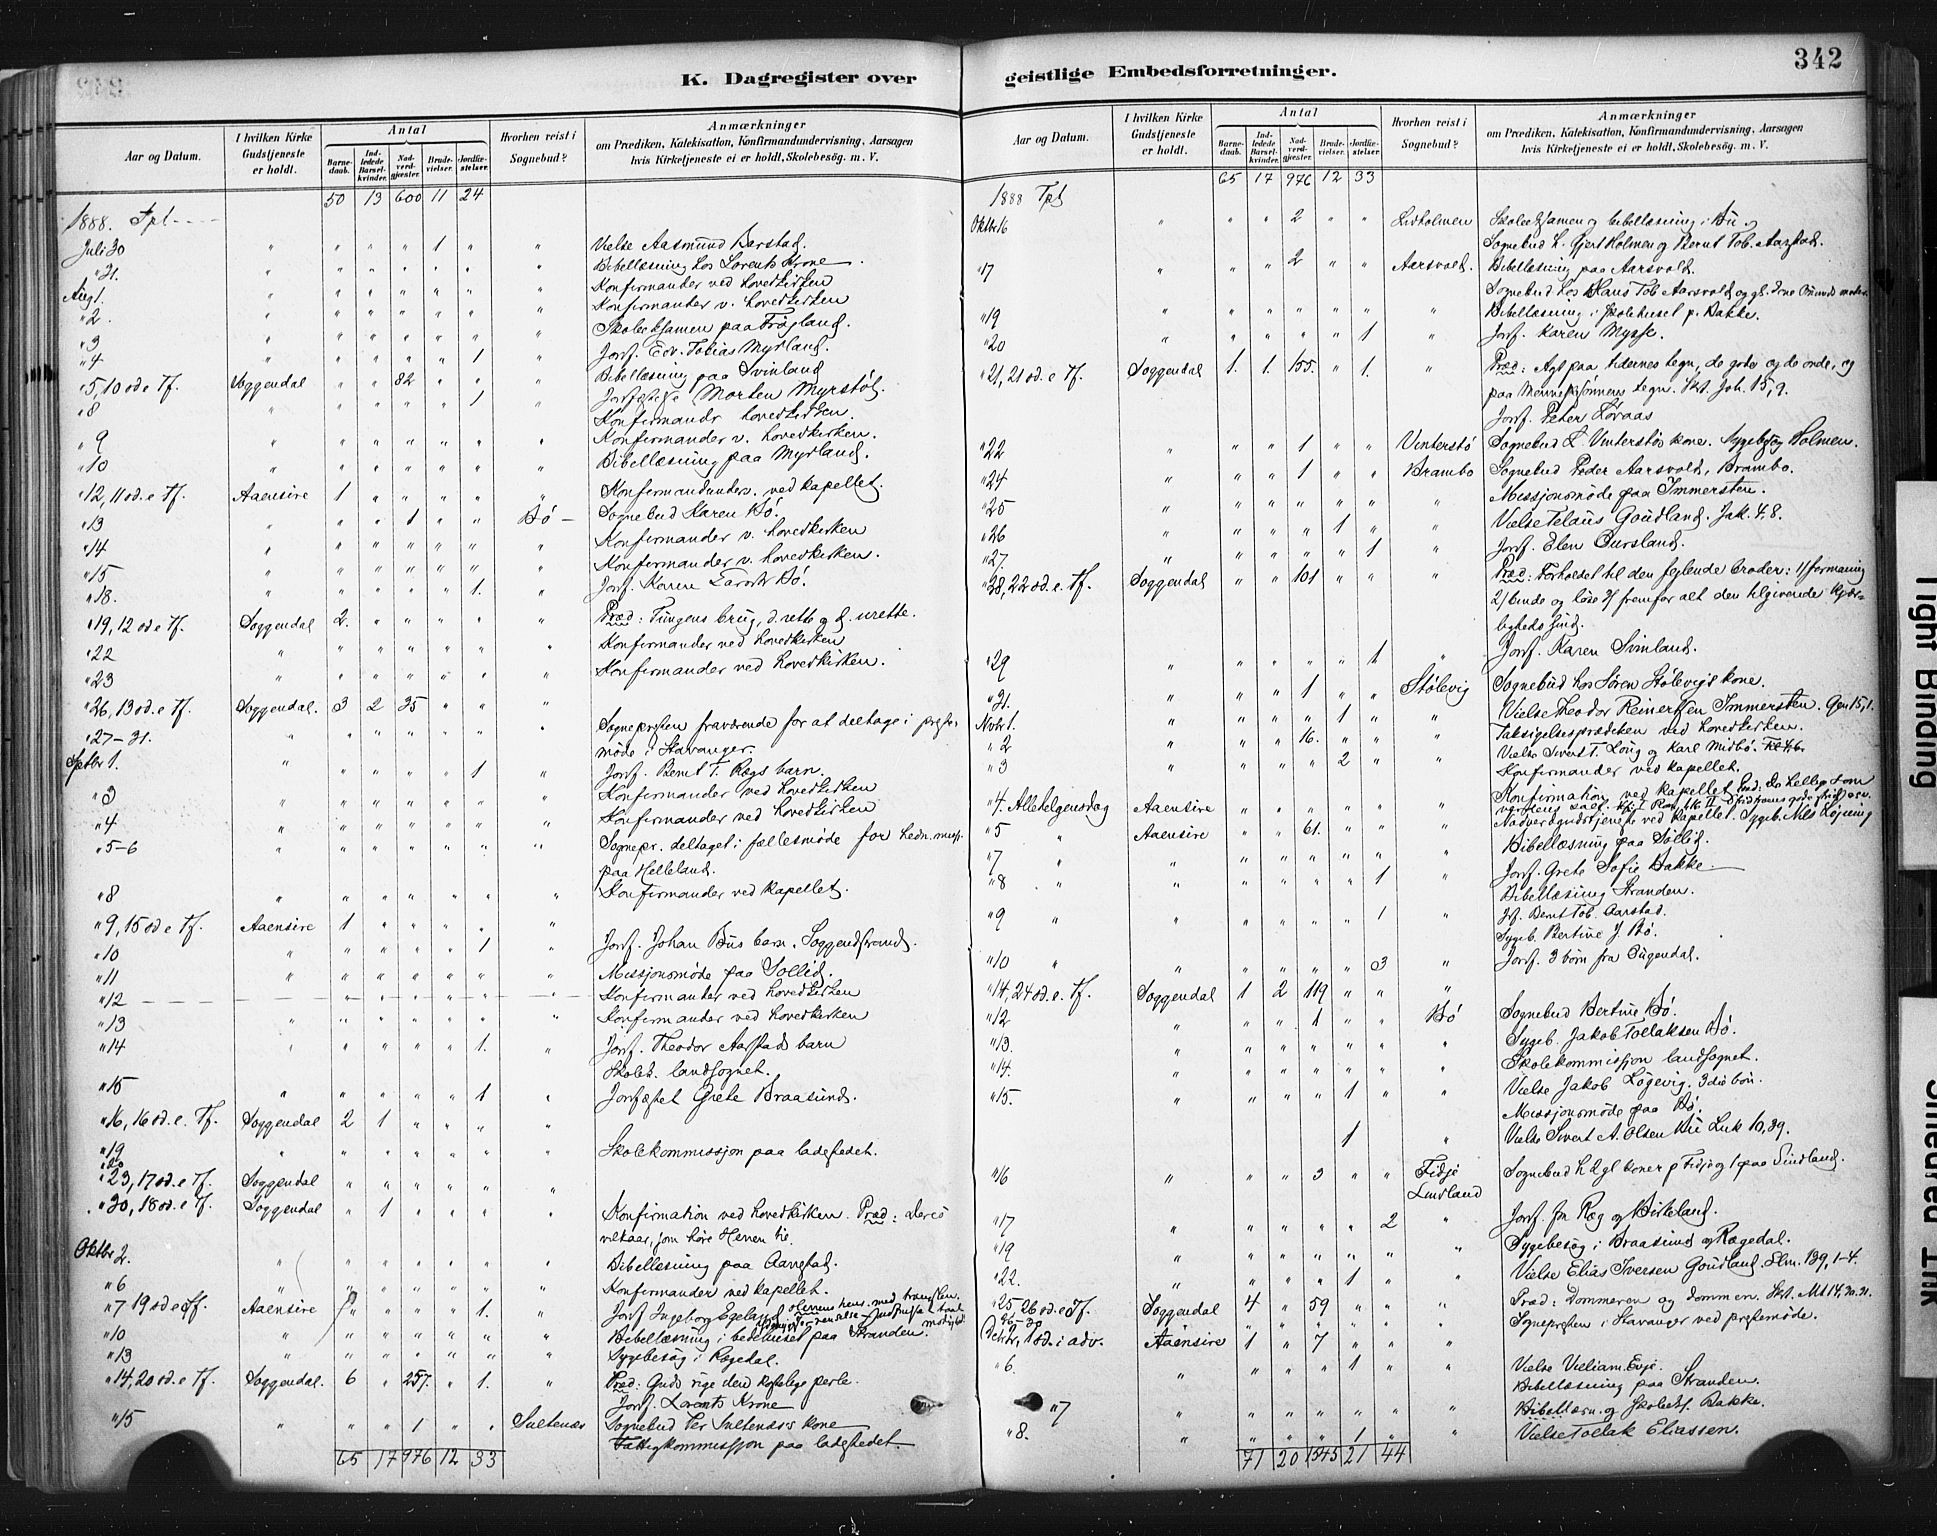 342
K. Dagregister over
geistlige Embedsforretninger.
Aar og Datum.
I hvilken Kirke Gudstjeneste er holdt.
Antal
Barnedaab.
Indledede Barselkvinder.
Nadverdgjæster.
Brudevielser.
Jordfæstelser.
Hvorhen reist i Sognebud?
Anmærkninger
om Prædiken, Katekisation, Konfirmandundervisning, Aarsagen
hvis Kirketjeneste ei er holdt, Skolebesög. m. V.
50 13 600 11 24
1888. Tpt
Juli 30 " " " " 1 " " Vielse Aasmund Barstad.
" 31. " " " " " " " Bibellæsning hos Lorents Krone
Aug 1. " " " " " " " Konfirmander ved hovedkirken
" 2. " " " " " " " Konfirmander v. hovedkirken
" 3 " " " " " " " Skoleexamen paa Frøgland.
" 4 " " " " " 1 " Jordf. Edv. Tobias Myrland.
" 5, 10 sd. e Tf. Soggendal " " 82 " " " Bibellæsning paa Svinland
" 8 " " " " " 1 " Jordfæstelse Morten Myrstøl.
Konfirmandr hovedkirken.
" 9 " " " " " " " Konfirmander v. hovedkirken.
" 10 " " " " " " " Bibellæsning paa Myrland.
" 12, 11 sd. e Tf. Aaensire 1 " " " " " Konfirmandunderv. ved kapellet.
" 13 " " " 1 " " Bø Sognebud Karen Bø.
" 14 " " " " " " " Konfirmander v. hovedkirken
" 15 " " " " " " " Konfirmander v. hovedkirken.
" 18. " " " " " 1. " Jorf. Karen Bø.
" 19, 12 sd e Tf. Soggendal 2. " " " " " Præd: Tungens brug, d. rette og d. urette.
" 22 " " " " " " " Konfirmander ved hovedkirken
" 23 " " " " " " " Konfirmander ved hovedkirken.
" 26, 13 sd. e Tf. Soggendal. 3 2 35 " " "
" 27-31. " Sognepresten fraværende for at deltage i prestemøde i Stavanger.
Septbr 1. " " " " " 1 " Jorf. Bernt T. Rægs barn.
" 3 " " " " " " " Konfirmander ved hovedkirken
" 4 " " " " " " " Konfirmander ved hovedkirken
" 5-6 " " " " " " " Sognepr. deltaget i fællesmøde for hedn. miss.
paa Helleland.
" 8 " " " " " " " Konfirmander ved kapellet.
" 9, 15 sd e Tf. Aaensire 1 " " " " "
" 10 " " " " " 1 " Jorf. Johan Bus barn. Soggendstrand.
" 11 " " " " " " " Missjonsmøde paa Sollid.
" 12 " " " " " " Konfirmander ved hovedkirken
" 13 " " " " " " " Konfirmander ved hovedkirken
" 14 " " " " " 1. " Jorf. Theodor Aarstads barn
Skolek. landsognet.
" 15 " " " " " 1 " Jorfæstet Grete Braasund.
" 16, 16 sd. e. Tf. Soggendal 2 1 " " " "
" 19 " " " " " " " Skolekommissjon paa ladestedet.
" 20
" 23, 17 sd. e Tf. Soggendal " " " " " "
" 30, 18 sd. e Tf. Soggendal " 1 " " " " Konfirmation ved hovedkirken. Præd:
vilkaar, som høre Herren til.
Oktbr 2. " " " " " " " Bibellæsning paa Aarstad.
" 6 " " " " " " " Konfirmander ved kapellet.
" 7 19 sd e Tf. Aaensire " " " " 1. " Jorf Ingeborg Egeland
" 10 " " " " " " " Bibellæsning i bedehuset paa Stranden.
" 13 " " " " " " " Sygebesøg i Rægedal.
" 14, 20 sd. e Tf. Soggendal. 6 " 257. " 1. " Præd: Guds rige den kostelige perle.
Jorf. Lorents Krone
" 15 " " " 1 " " Sultenæs Sognebud Per Sultenæs's kone
Fattigkommissjon paa ladestedet.
65 17 976 12 33
Aar og Datum.
I hvilken Kirke Gudstjeneste er holdt.
Antal
Barnedaab.
Indledede Barselkvinder.
Nadverdgjæster.
Brudevielser.
Jordfæstelser.
Hvorhen reist i Sognebud?
Anmærkninger
om Prædiken, Katekisation, Konfirmandundervisning, Aarsagen
hvis Kirketjeneste ei er holdt, Skolebesög. m. V.
65 17 976 12 33
1888 Tpt
Oktbr 16 " " " 2 " " Lidholmen Skoleexamen og bibellæsning i Bu
Sognebud h. Gjert Holmen og Bernt Tob. Aarstad.
" 17 " " " 2 " " Aarsvold. Bibellæsning paa Aarsvold.
Sognebud hos Hans Tob Aarsvold og
" 19 " " " " " " " Bibellæsning i skolehuset p. Bakke.
" 20 " " " " " 1 " Jorf. Karen Mysse.
" 21, 21 sd. e Tf. Soggendal 1. 1. 155. " 1. " Præd: Agt paa tidernes tegn, de gode og de onde, og
paa Menneskesønnens tegn. Skt. Joh. 15, 9.
Jorf. Peter
" 22 " " " 1 " " Vinterstø Sognebud t. Vinterstøs kone. Sygebesøg Holmen.
" 24 " " " 1 " " Brambo Sognebud Peder Aarsvold, Brambo.
" 25 " " " " " " " Missjonsmøde paa Immersten.
" 26 " " " " 1 " " Vielse Telaus Goudland. Jak. 4. 8.
" 27. " " " " " 1 " Jorf. Elen Oursland.
" 28, 22 sd. e Tf. Soggendal " " 101 " " " Præd: Forholdet til den feilende broder: 1/ formaning
2/ binde og løse 3/ fremfor alt den tilgivende kjærlighedssind.
" 29 " " " " " 1 " Jorf. Karen Svinland.
" 31. " " " 1 " " Stølevig Sognebud hos Søren Stølevigs kone.
Novbr 1. " " " " 1 " " Vielse Theodor Reinertsen Immersten. Gen 15, 1.
" 2 " " " 16. " " " Taksigelsesprædiken ved hovedkirken.
" 3 " " " " 2 " " Vielse Sivert T Loug og Karl Midbø.
Konfirmander ved kapellet.
" 4. Allehelgensdag Aaensire " " " " " " Konfirmation ved kapellet
" 5 " Aaensire " " 61. " " " Nadverdgudstjeneste ved kapellet. Sygeb. Nils Løining
" 7 " " " " " " " " Bibellæsning paa Sollid.
" 8 " " " " " " 1 " Jorf. Grete Sofie Bakke
Bibellæsning Stranden.
" 9 " " " " " " 1 " Jf. Bernt Tob. Aarstad.
Sygeb. Bertine J. Bø.
" 10 " " " " " " 3 " Jorf. 3 børn fra Rugendal.
" 14, 24 sd. e Tf. Soggendal 1 2 119 " " "
" 12 " " " 1 " " Bø Sognebud Bertine Bø.
" 13. " " " " " " " Sygeb. Jakob Tollaksen Bø.
" 14. " " " " " " " Skolekommissjon landsognet.
" 15. " " " " 1 " " Vielse Jakob Løgevig.
Missjonsmøde paa Bø.
1 " Vielse Sivert A. Olsen Bu Luk 10, 39.
" 16 " " " 3 " " Fidje Lindland Sognebud h 2 gl koner p Fidje og 1 paa Lindland.
" 17 " " " " " 2 " Jorf. fra Ræg og Birkeland.
" 19 " " " " " " " Sygebesøg i Braasund og Rægedal.
" 22. " " " " 1 " " Vielse Elias Iversen Goudland. Slm. 139, 1-4.
" 25, 26 sd. e Tf. Soggendal 4 " 59 " " " Præd: Dommeren og dommen. Skt. Mt 14, 20. 21.
" 26-30 Sognepresten i Stavanger ved prestemøde.
Debr 2, 1 sd. i adv. Aaensire 1 " 7 " " "
" 6. " " " " 1 " " Vielse Villiam Evje.
Bibellæsning paa Stranden.
" 7 " " " " " " " Bibellæsn. og skolebes. Bakke.
" 8. " " " " 1 " " Vielse Tollak Eliassen.
71 20 1545 21 44
Tight Binding
Smeared Ink